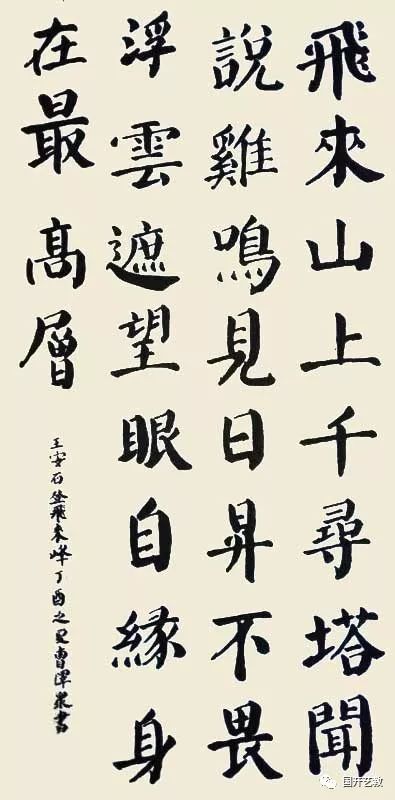 飛來山上千尋塔聞
說雞鳴見日昇不畏
浮雲遮望眼自緣身
在最髙層
王安石登飛来峰丁酉之夏曹書
国开艺教